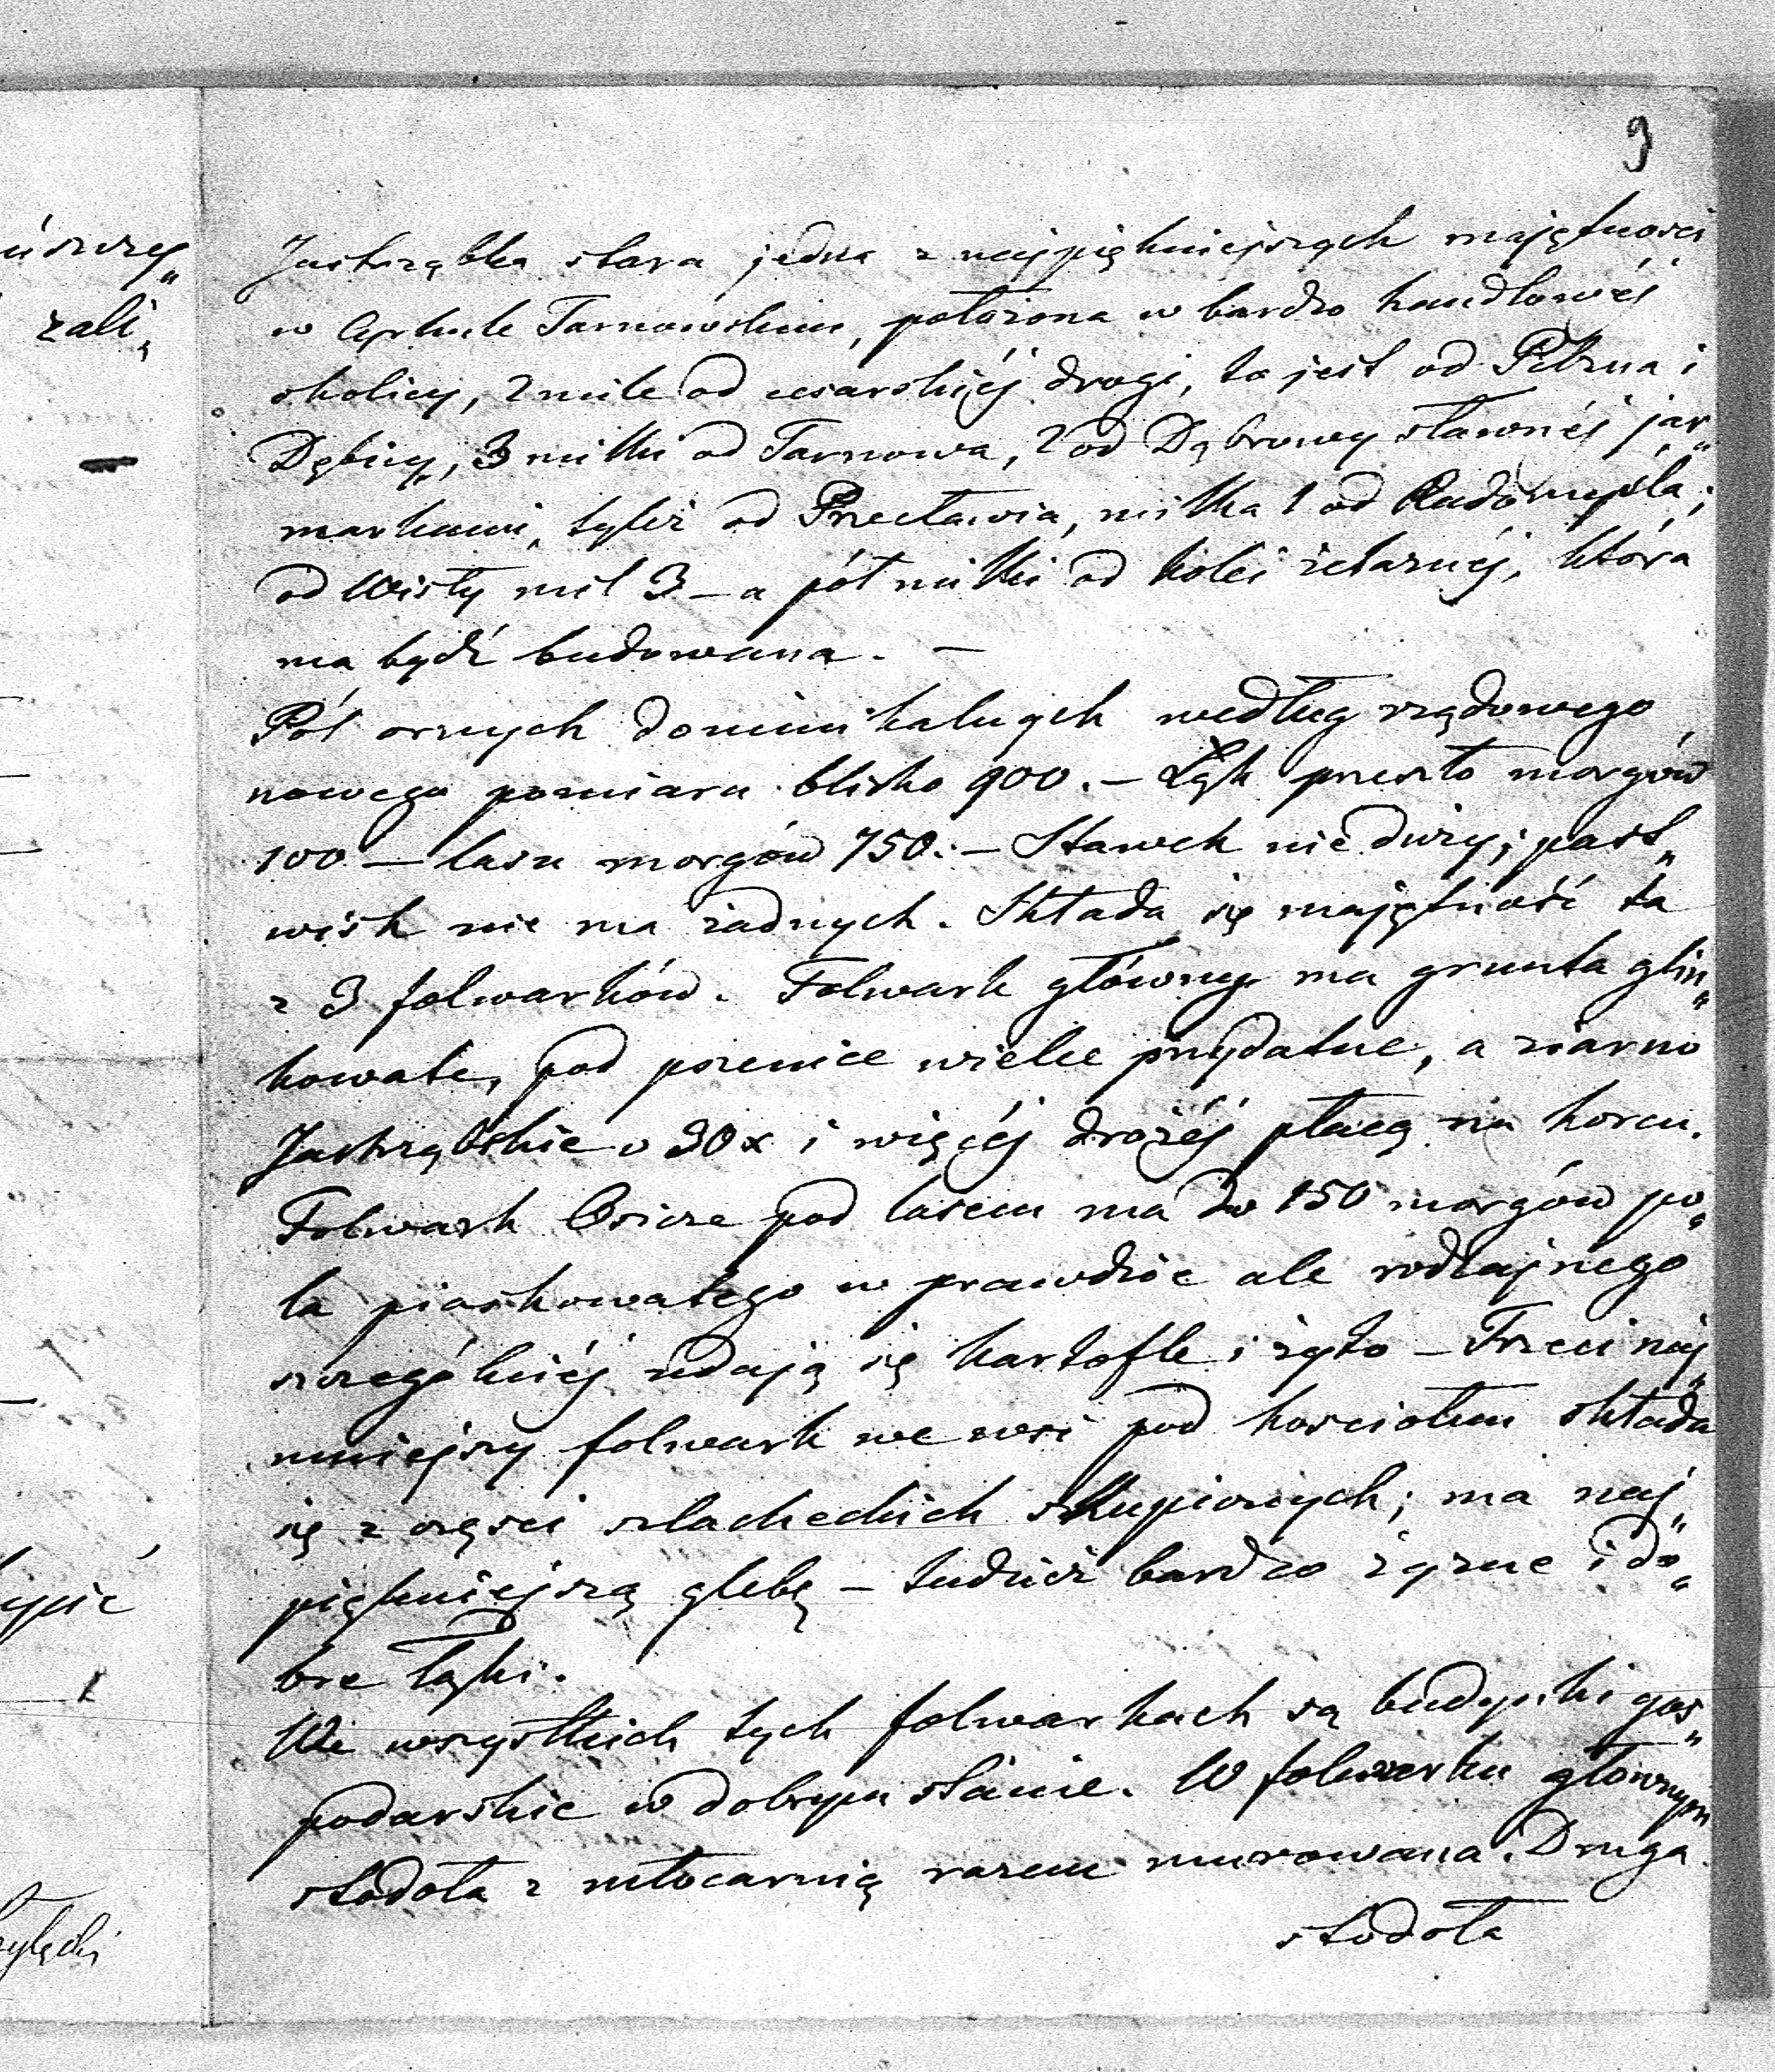 9
Jastrząbka stara jedna z najpiękniejszych majętności
w Cyrkule Tarnowskim, położona w bardzo handlowéj
okolicy, 2 mile od cesarskiéj drogi, to jest od Pilzna i
Dębicy, 3 milki od Tarnowa, 2 od Dąbrowy sławnéj jar„
markami, tyleż od Przecławia, milka 1 od Radomyśla,
od Wisły mil 3 – a pół milki od kolei żelaznéj, która
ma bydź budowana. –
Pól ornych dominikalnych według rządowego
nowego pomiaru blisko 900. – Łąk przeszło morgów
100 – lasu morgów 750. – Stawek nie duży; past„
wisk nie ma żadnych. Składa się majętność ta
z 3 folwarków. Folwark główny ma grunta glin„
kowate, pod pszenice wielce przydatne, a ziarno
Jastrząbskie o 30x i więcéj drożéj płacą na korcu.
Folwark pod lasem ma do 150 morgów po„
la piaskowatego w prawdzie ale rodzajnego
szczególniéj udają się kartofle i żyto – Trzeci naj„
mniejszy folwark we wsi pod kosciołem składa
się z części szlacheckich skupionych; ma naj„
piękniejszą glebę – tudzież bardzo żyzne i do„
bre łąki.
We wszystkich tych folwarkach są budynki gos„
podarskie w dobrym stanie. W folwarku głównym
stodoła z młocarnią razem murowana. Druga
stodoła
zali„